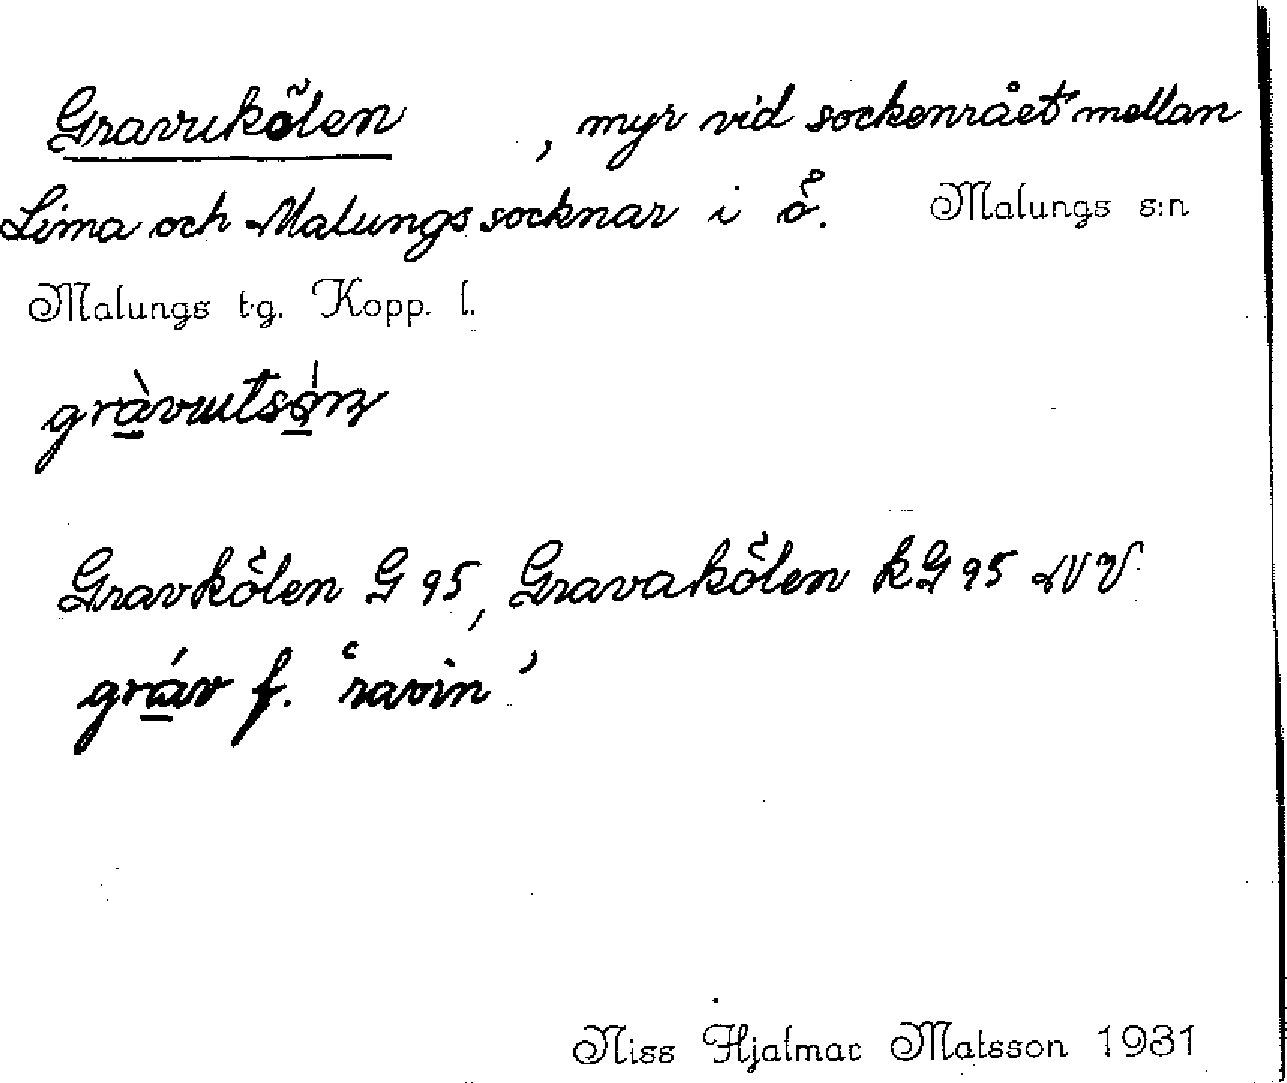 Gravukölen , myr vid sockenrået mellan
Lima och Malungs socknar i ö. Malungs s:n
Malungs t.g. Kopp. l.
Gravkölen G 95, Gravakölen kG 95 NV
gráv f. 'ravin'
Niss Hjalmar Matsson 1931